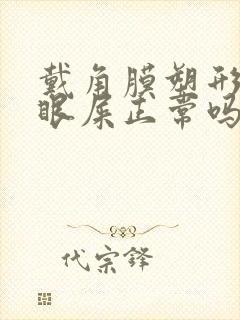 戴角膜塑形
眼屎正常吗
代宗铎